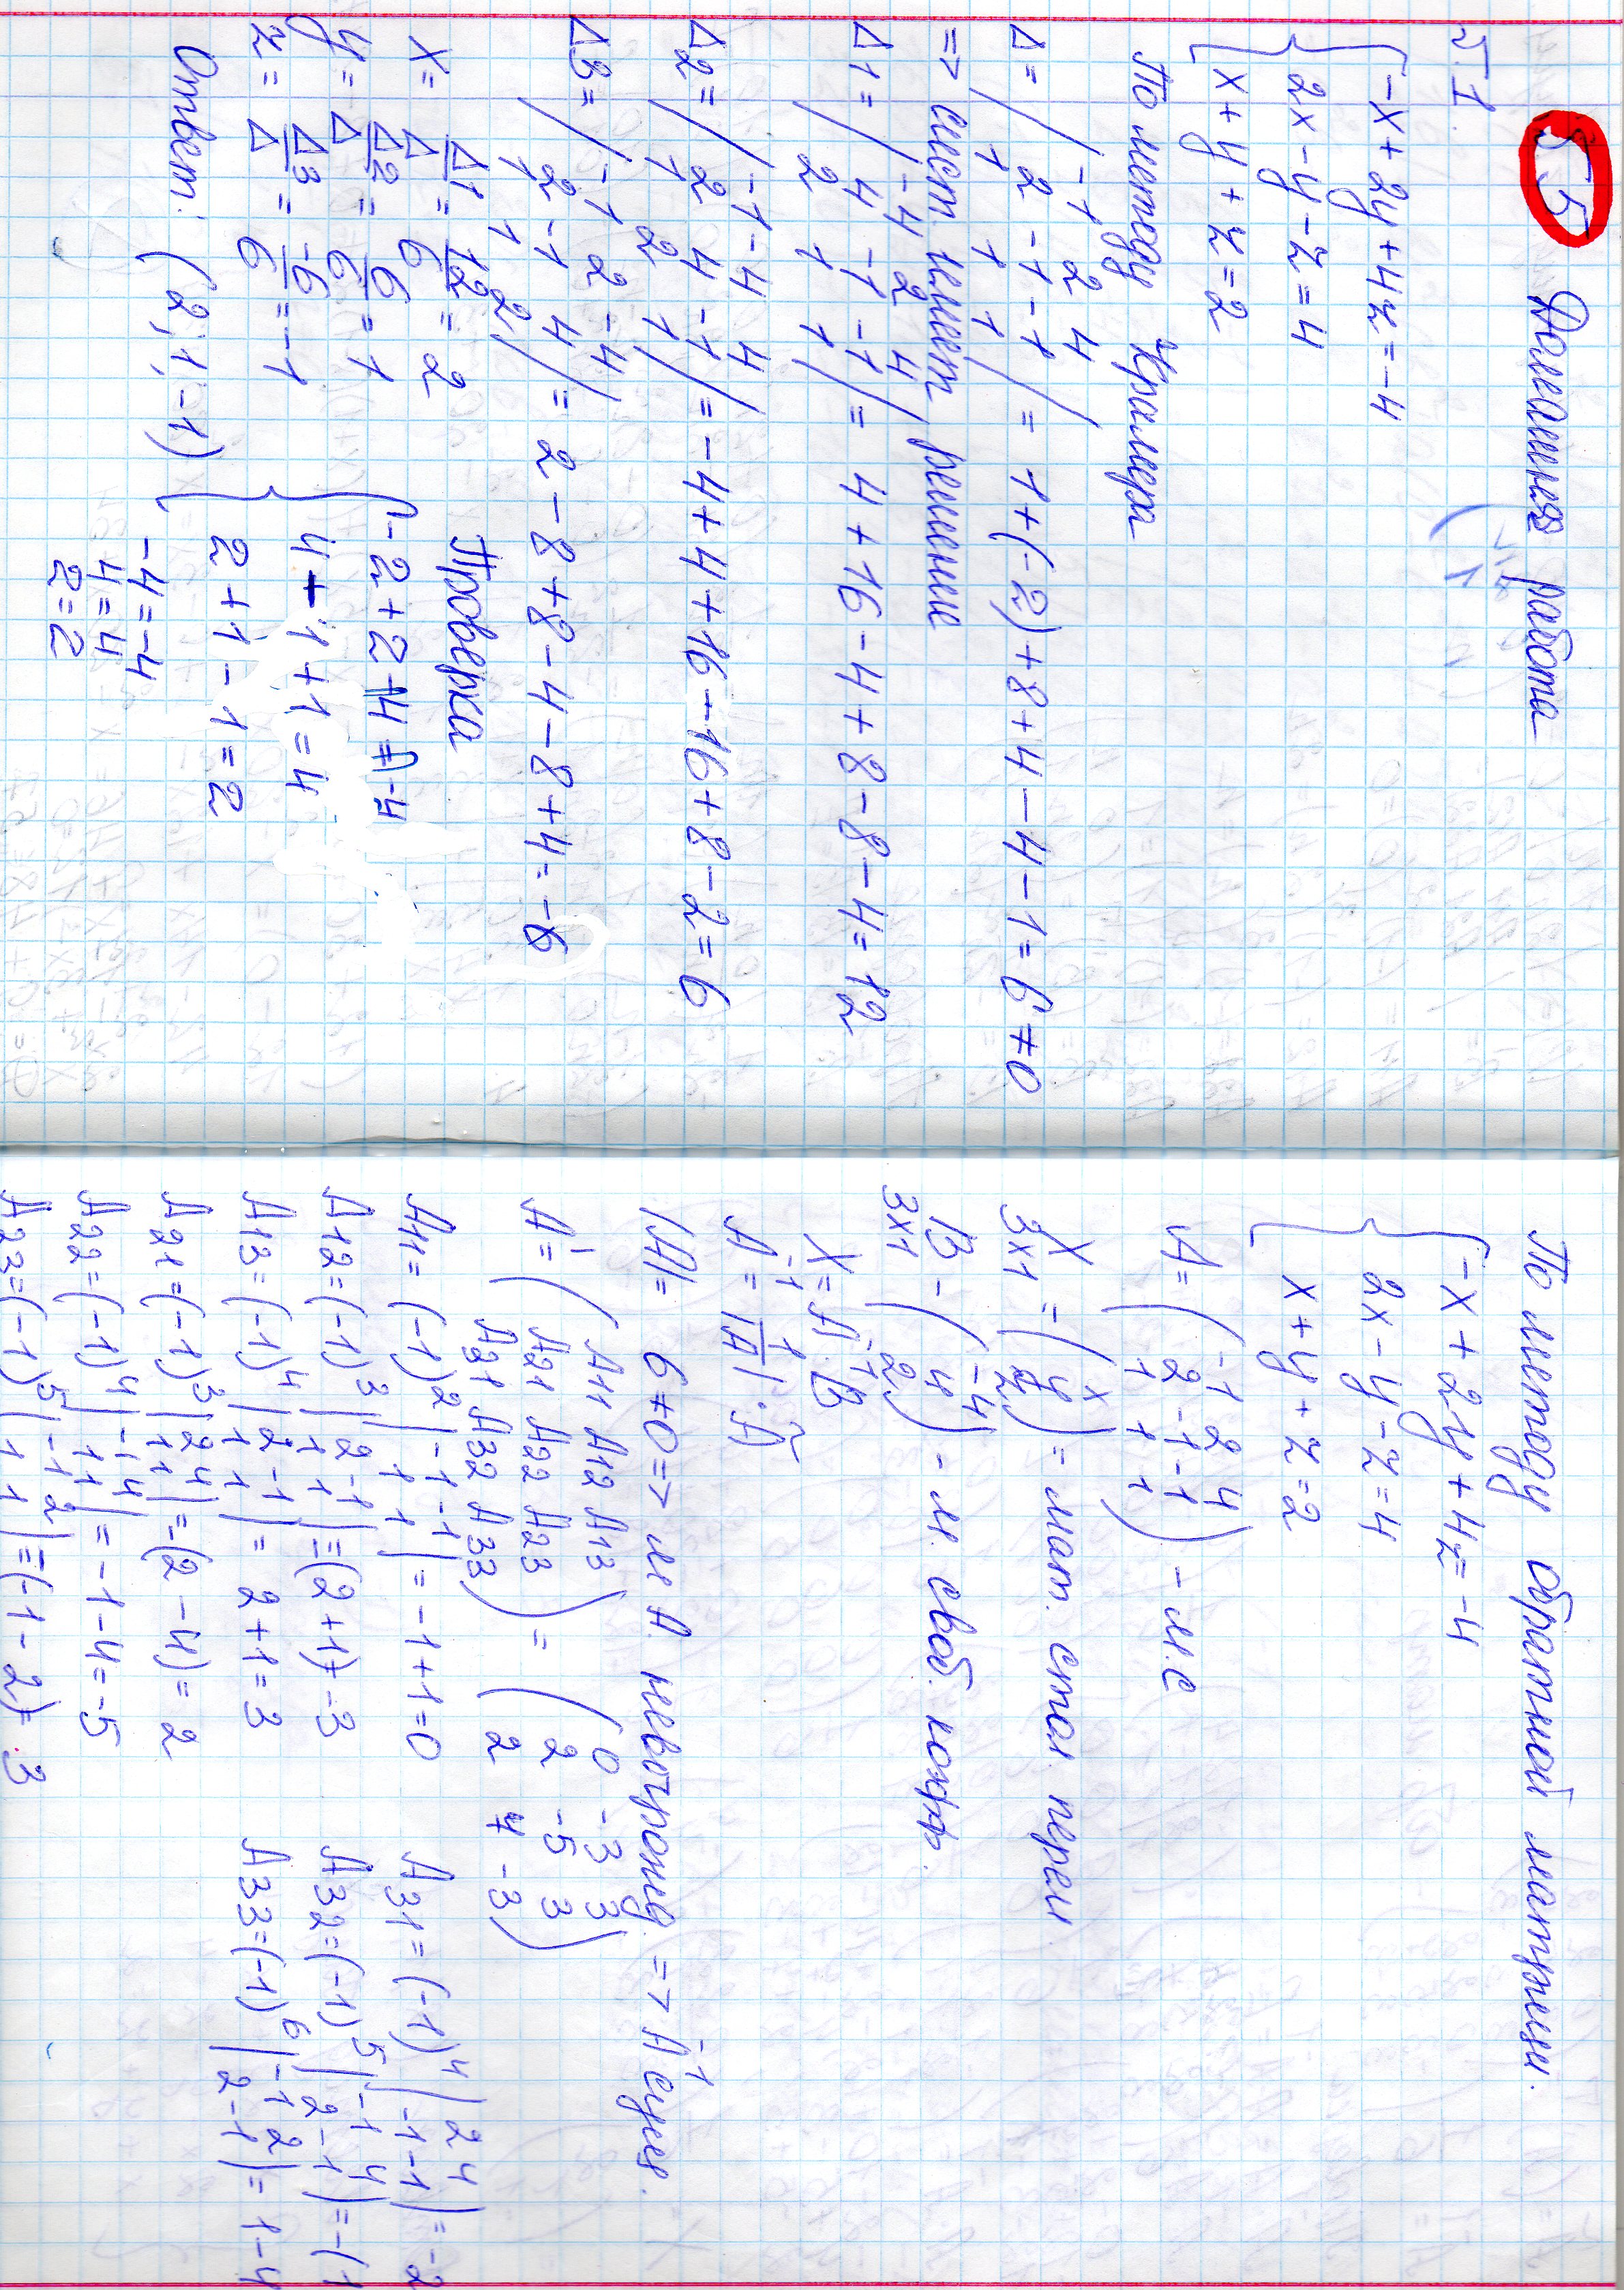 55 Домашняя работа
5.1.
-x + 2y + 4z = -4
2x - y - z = 4
x + y + z = 2
По методу Крамера
Δ = / -1 2 4
2 -1 -1
1 1 1 / = 1+(-2)+8+4-4-1=6≠0
=> сист. имеет решение
Δ1 = / -4 2 4
4 -1 -1
2 1 1 / = 4+16-4+8-8-4=12
Δ2 = / -1 -4 4
2 4 -1
1 2 1 / = -4+4+16-16+8-2=6
Δ3 = / -1 2 -4
2 -1 4
1 1 2 / = 2-8+8-4-8+4=-6
x = Δ1/Δ = 12/6 = 2
y = Δ2/Δ = 6/6 = 1
z = Δ3/Δ = -6/6 = -1
Ответ: (2; 1; -1)
Проверка
-2+2-4=-4
4-1+1=4
2+1-1=2
-4=-4
4=4
2=2
По методу обратной матрицы.
-x + 2y + 4z = -4
2x - y - z = 4
x + y + z = 2
A = ( -1 2 4
2 -1 -1
1 1 1 ) - м.с
X 3x1 = ( x
y
z ) = мат. стол. перем.
B 3x1 - ( -4
4
2 ) - м. своб. коэф.
X = A^-1 · B
A^-1 = 1/|A| · Ã
|A| = 6≠0 => м A невырожд. => A^-1 сущ.
A^1 = ( A11 A12 A13
A21 A22 A23
A31 A32 A33 ) = ( 0 -3 3
2 -5 3
2 7 -3 )
A11 = (-1)^2 | -1 -1
1 1 | = -1+1=0
A12 = (-1)^3 | 2 -1
1 1 | = (2+1) -3
A13 = (-1)^4 | 2 -1
1 1 | = 2+1=3
A21 = (-1)^3 | 2 4
1 1 | = (2-4) = 2
A22 = (-1)^4 | -1 4
1 1 | = -1-4=-5
A23 = (-1)^5 | -1 2
1 1 | = (-1-2) = 3
A31 = (-1)^4 | 2 4
-1 -1 ) = -2
A32 = (-1)^5 | -1 4
2 -1 ) = -(1
A33 = (-1)^6 | -1 2
2 -1 ) = 1-4